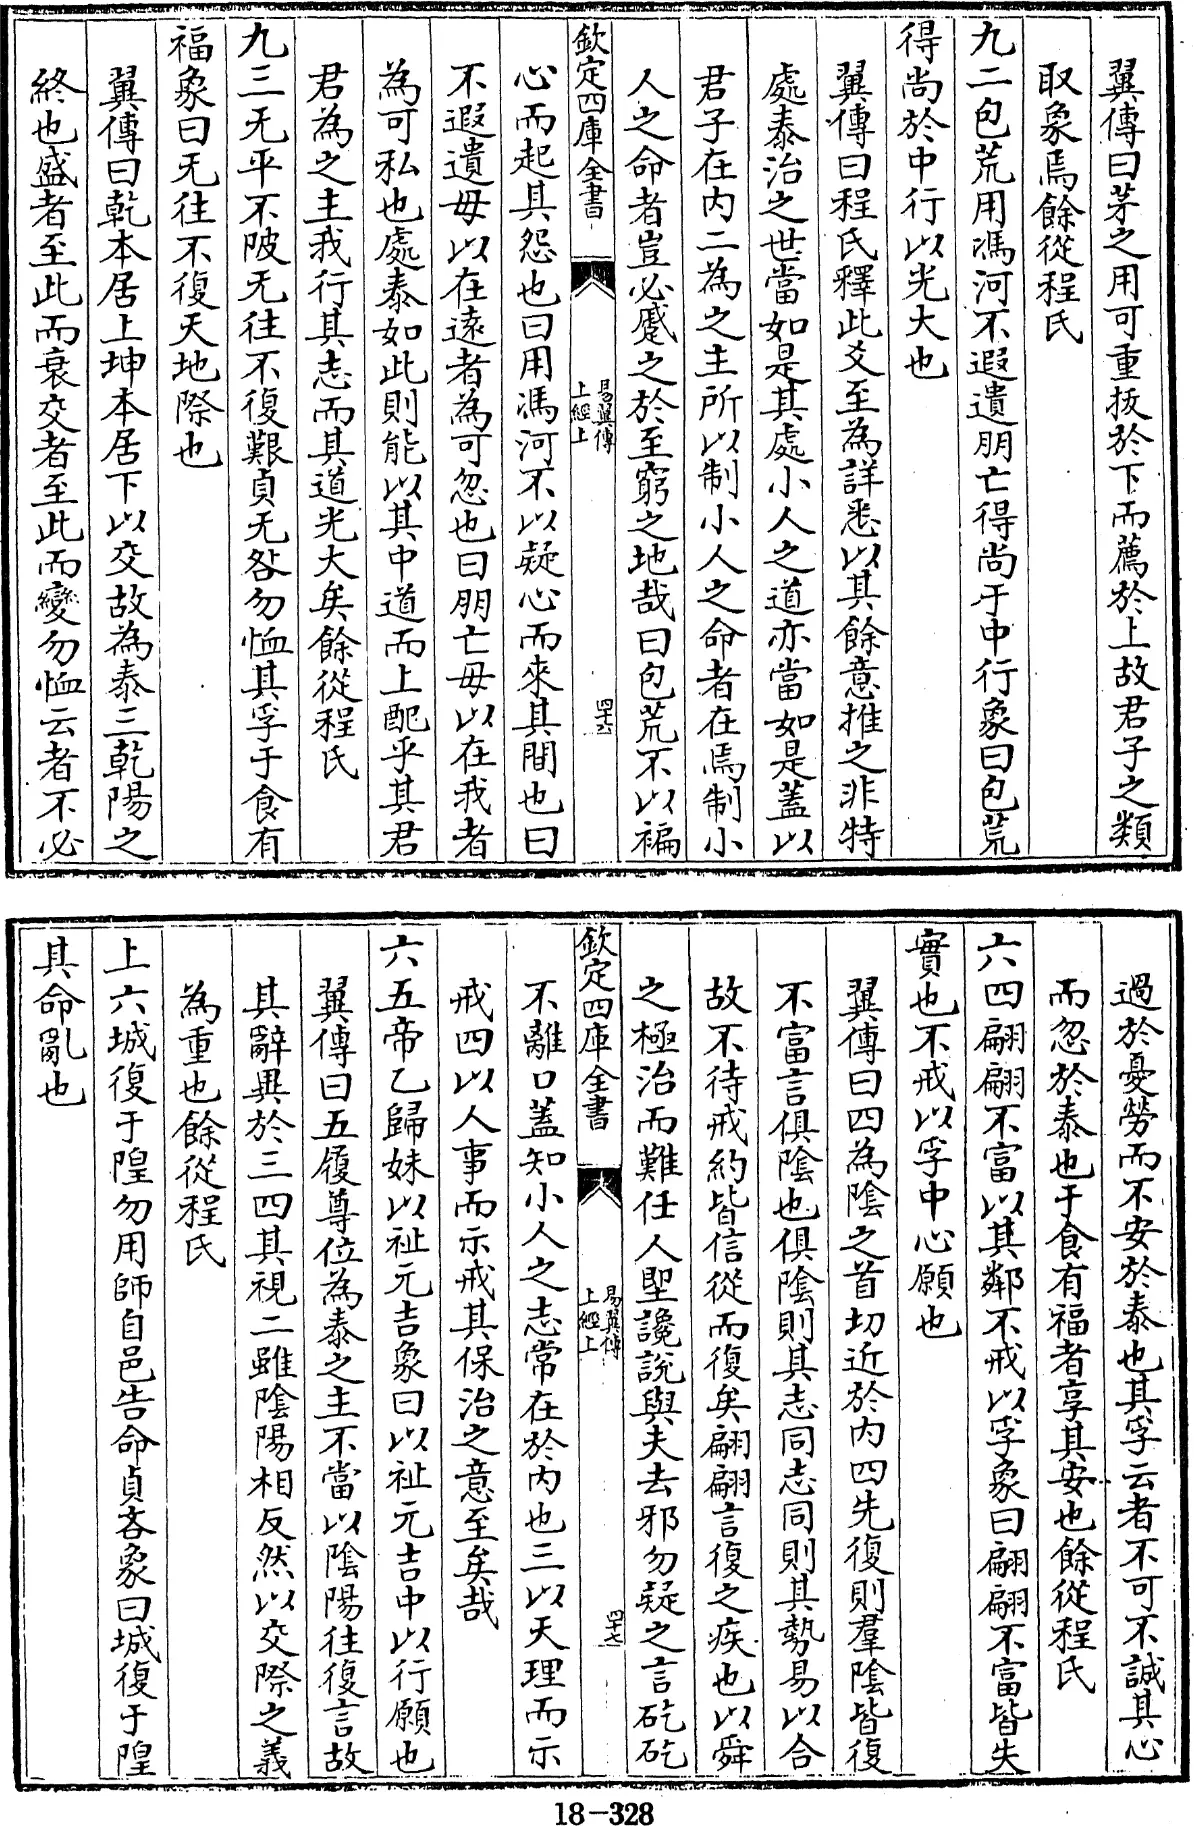 翼傳曰茅之用可重拔於下而薦於上故君子之類
取象焉餘從程氏
九二包荒用馮河不遐遺朋亡得尚于中行象曰包荒
得尚於中行以光大也
翼傳曰程氏釋此爻至為詳悉以其餘意推之非特
處泰治之世當如是其處小人之道亦當如是蓋以
君子在内二為之主所以制小人之命者在焉制小
人之命者豈必蹙之於至窮之地哉曰包荒不以褊
欽定四庫全書
易翼傳
上經上
四十六
心而起其怨也曰用馮河不以疑心而來其間也曰
不遐遺毋以在逺者為可忽也曰朋亡毋以在我者
為可私也處泰如此則能以其中道而上配乎其君
君為之主我行其志而其道光大矣餘從程氏
九三无平不陂无往不復艱貞无咎勿恤其孚于食有
福象曰无往不復天地際也
翼傳曰乾本居上坤本居下以交故為泰三乾陽之
終也盛者至此而衰交者至此而變勿恤云者不必
過於憂勞而不安於泰也其孚云者不可不誠其心
而忽於泰也于食有福者享其安也餘從程氏
六四翩翩不富以其鄰不戒以孚象曰翩翩不富皆失
實也不戒以孚中心願也
翼傳曰四為陰之首切近於内四先復則羣陰皆復
不富言俱陰也俱陰則其志同志同則其勢易以合
故不待戒約皆信從而復矣翩翩言復之疾也以舜
之極治而難任人堲讒說與夫去邪勿疑之言矻矻
欽定四庫全書
易翼傳
上經上
四十七
不離口蓋知小人之志常在於内也三以天理而示
戒四以人事而示戒其保治之意至矣哉
六五帝乙歸妹以祉元吉象曰以祉元吉中以行願也
翼傳曰五履尊位為泰之主不當以陰陽往復言故
其辭異於三四其視二雖陰陽相反然以交際之義
為重也餘從程氏
上六城復于隍勿用師自邑告命貞吝象曰城復于隍
其命亂也
18-328